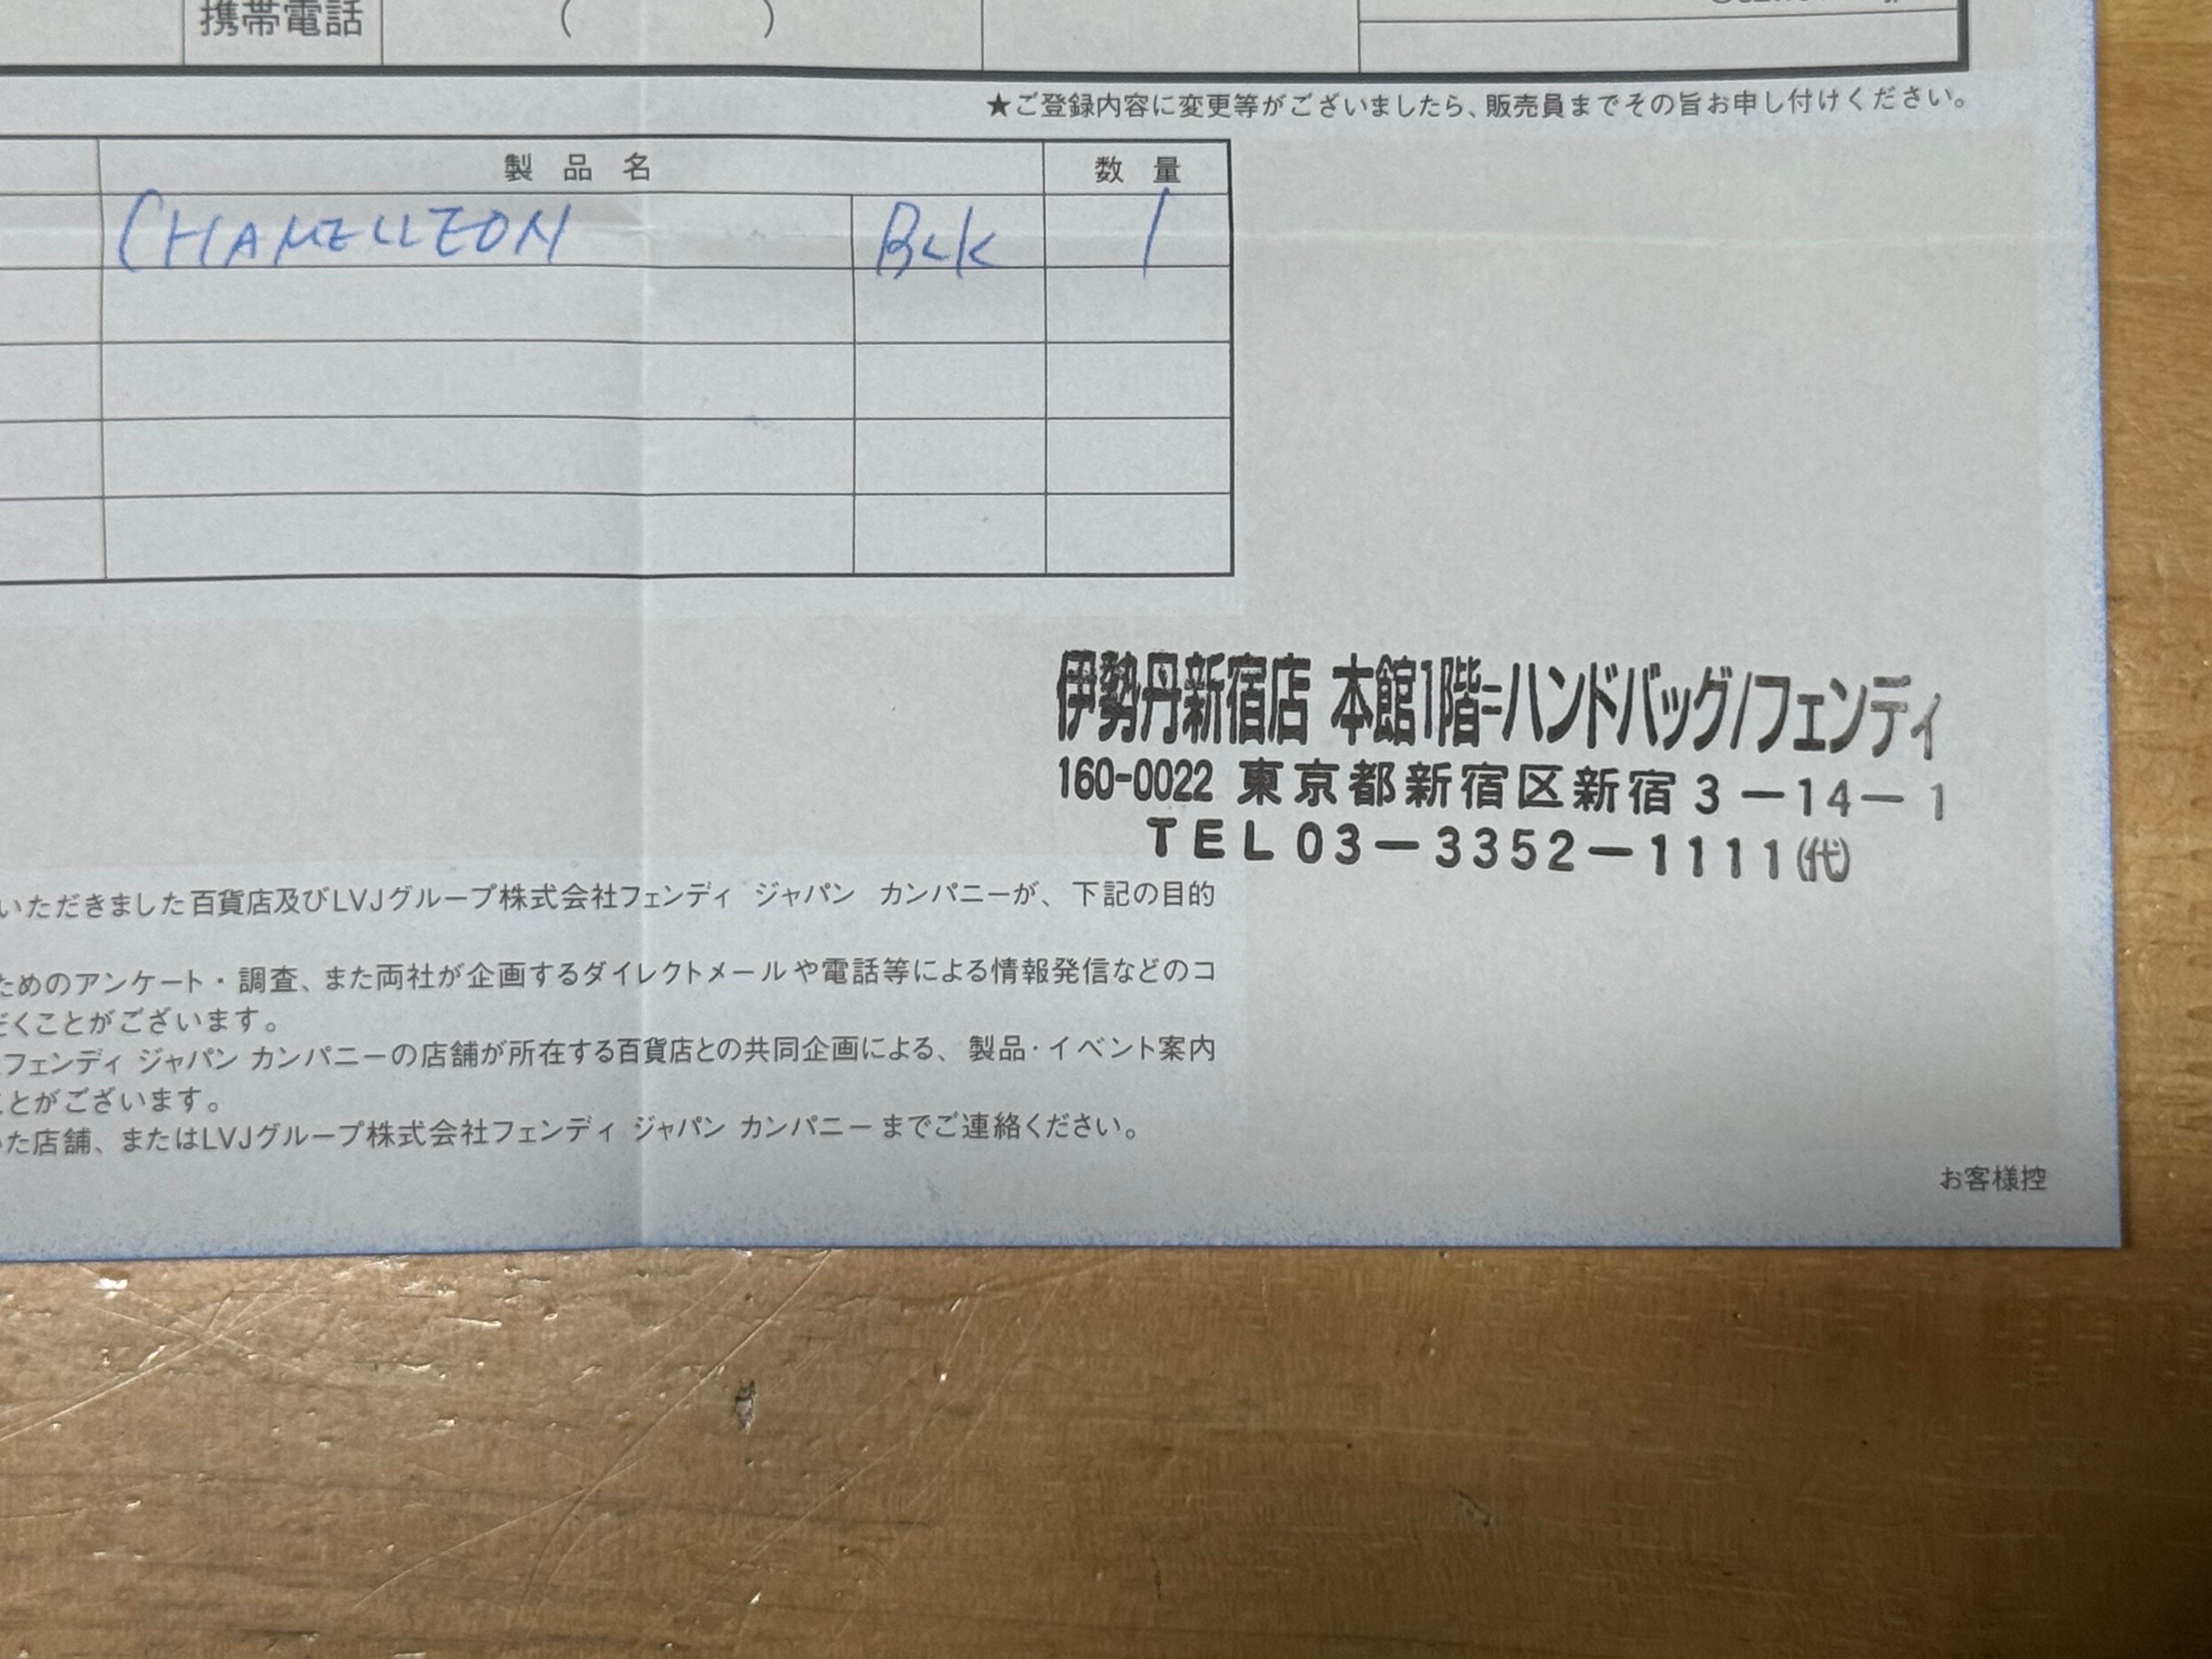 携帯電話 ( )
★ご登録内容に変更等がございましたら、販売員までその旨お申し付けください。
製品名 数量
CHAMELLEON BLK 1
伊勢丹新宿店 本館1階=ハンドバッグ/フェンディ
160-0022 東京都新宿区新宿3-14-1
TEL03-3352-1111(代)
いただきました百貨店及びLVJグループ株式会社フェンディ ジャパン カンパニーが、下記の目的
ためのアンケート・調査、また両社が企画するダイレクトメールや電話等による情報発信などのコ
だくことがございます。
フェンディ ジャパン カンパニーの店舗が所在する百貨店との共同企画による、製品・イベント案内
ことがございます。
いた店舗、またはLVJグループ株式会社フェンディ ジャパン カンパニーまでご連絡ください。
お客様控